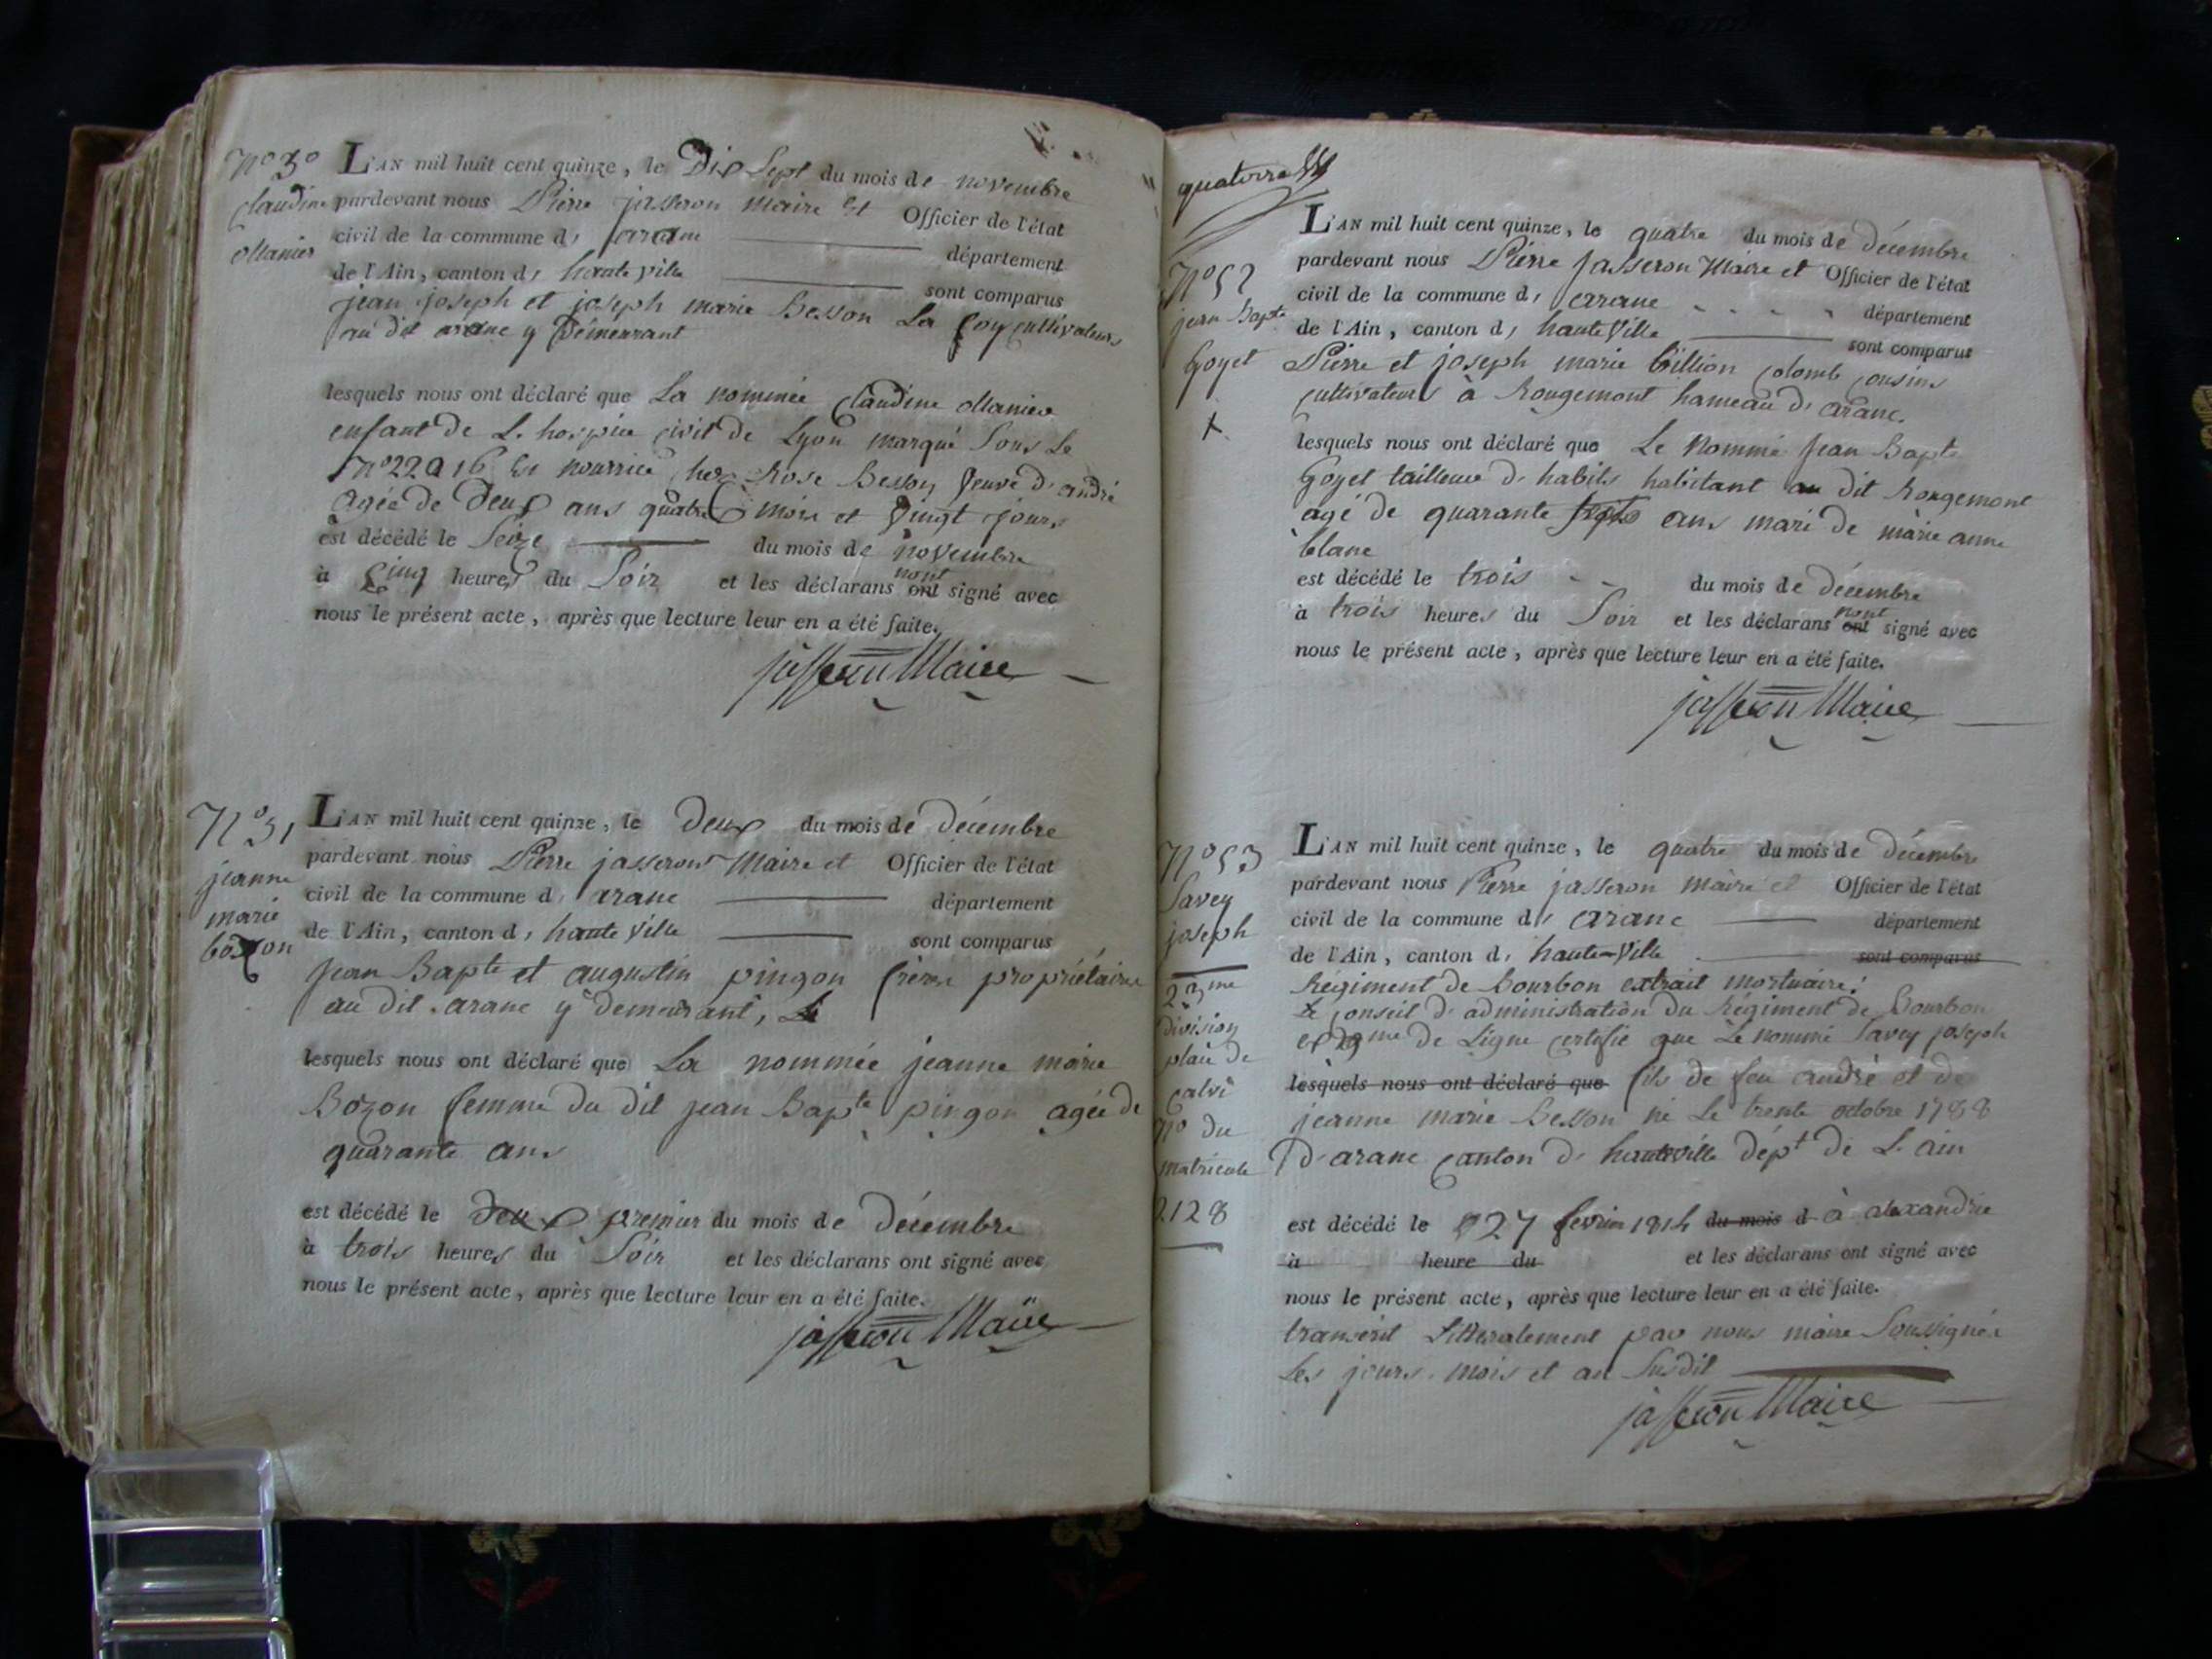 N.o 50
Claudine
ollanier
L'AN mil huit cent quinze, le Dix Sept du mois de novembre
pardevant nous Pierre jasseron maire et Officier de l'état
civil de la commune d' aranc département
de l'Ain, canton d' haute ville sont comparus
jean joseph et joseph marie Besson La cultivateurs
au dit aranc y Demeurant
lesquels nous ont déclaré que La nominée Claudine ollanier
enfant de L. hospice civil de Lyon marqué Sous Le
N.o 22916 et nourrice chez Rose Besson veuve d'andré
agée de Deux ans quatre mois et vingt jours
est décédé le Seize du mois de novembre
à Cinq heures du Soir et les déclarans nont ont signé avec
nous le présent acte, après que lecture leur en a été faite.
jasseron Maire
N.o 51
jeanne
marie
bozon
L'AN mil huit cent quinze, le Deux du mois de décembre
pardevant nous Pierre jasseron Maire et Officier de l'état
civil de la commune d' aranc département
de l'Ain, canton d' haute ville sont comparus
jean Bapte et augustin pingon frères propriétaires
au dit aranc y demeurant,
lesquels nous ont déclaré que La nommée jeanne marie
Bozon femme du dit jean Bapte pingon agée de
quarante ans
est décédé le deux premier du mois de décembre
à trois heures du Soir et les déclarans ont signé avec
nous le présent acte, après que lecture leur en a été faite.
jasseron Maire
quatorze
N.o 52
jean Bapte
Goyet
x
L'AN mil huit cent quinze, le quatre du mois de décembre
pardevant nous Pierre jasseron Maire et Officier de l'état
civil de la commune d' aranc département
de l'Ain, canton d' haute Ville sont comparus
Pierre et joseph marie billion colomb cousins
cultivateurs à Rougemont hameau d' aranc.
lesquels nous ont déclaré que Le Nommé jean Bapte
Goyet tailleur d' habits habitant au dit Rougemont
agé de quarante ans mari de marie anne
blanc
est décédé le trois du mois de décembre
à trois heures du Soir et les déclarans nont ont signé avec
nous le présent acte, après que lecture leur en a été faite.
jasseron Maire
N.o 53
Savey
joseph
division
place de
calvi
N.o du
matricule
2128
L'AN mil huit cent quinze, le quatre du mois de décembre
pardevant nous Pierre jasseron maire et Officier de l'état
civil de la commune d' aranc département
de l'Ain, canton d' haute-Ville sont comparus
Régiment de Bourbon extrait mortuaire.
Le conseil d'administration du Régiment de Bourbon
de Ligne certifie que Le nommé Savey joseph
lesquels nous ont déclaré que fils de feu andré et de
jeanne marie Besson né Le trente octobre 1788
D'aranc canton d' hauteville dépt de L'ain
est décédé le 27 fevrier 1814 du mois d à alexandrie
à heure du et les déclarans ont signé avec
nous le présent acte, après que lecture leur en a été faite.
transcrit Litteralement par nous maire Soussigné
Les jours, mois et an Susdit
jasseron Maire